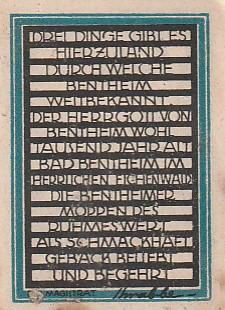 DREI DINGE GIBT ES
HIERZULAND
DURCH WELCHE
BENTHEIM
WELTBEKANNT.
DER HERRGOTT VON
BENTHEIM WOHL
TAUSEND JAHR ALT
BAD BENTHEIM IM
HERRLICHEN EICHENWALD
DIE BENTHEIMER
MOPPEN DES
RUHMES WERT
ALS SCHMACKHAFT
GEBÄCK BELIEBT
UND BEGEHRT
MAGISTRAT